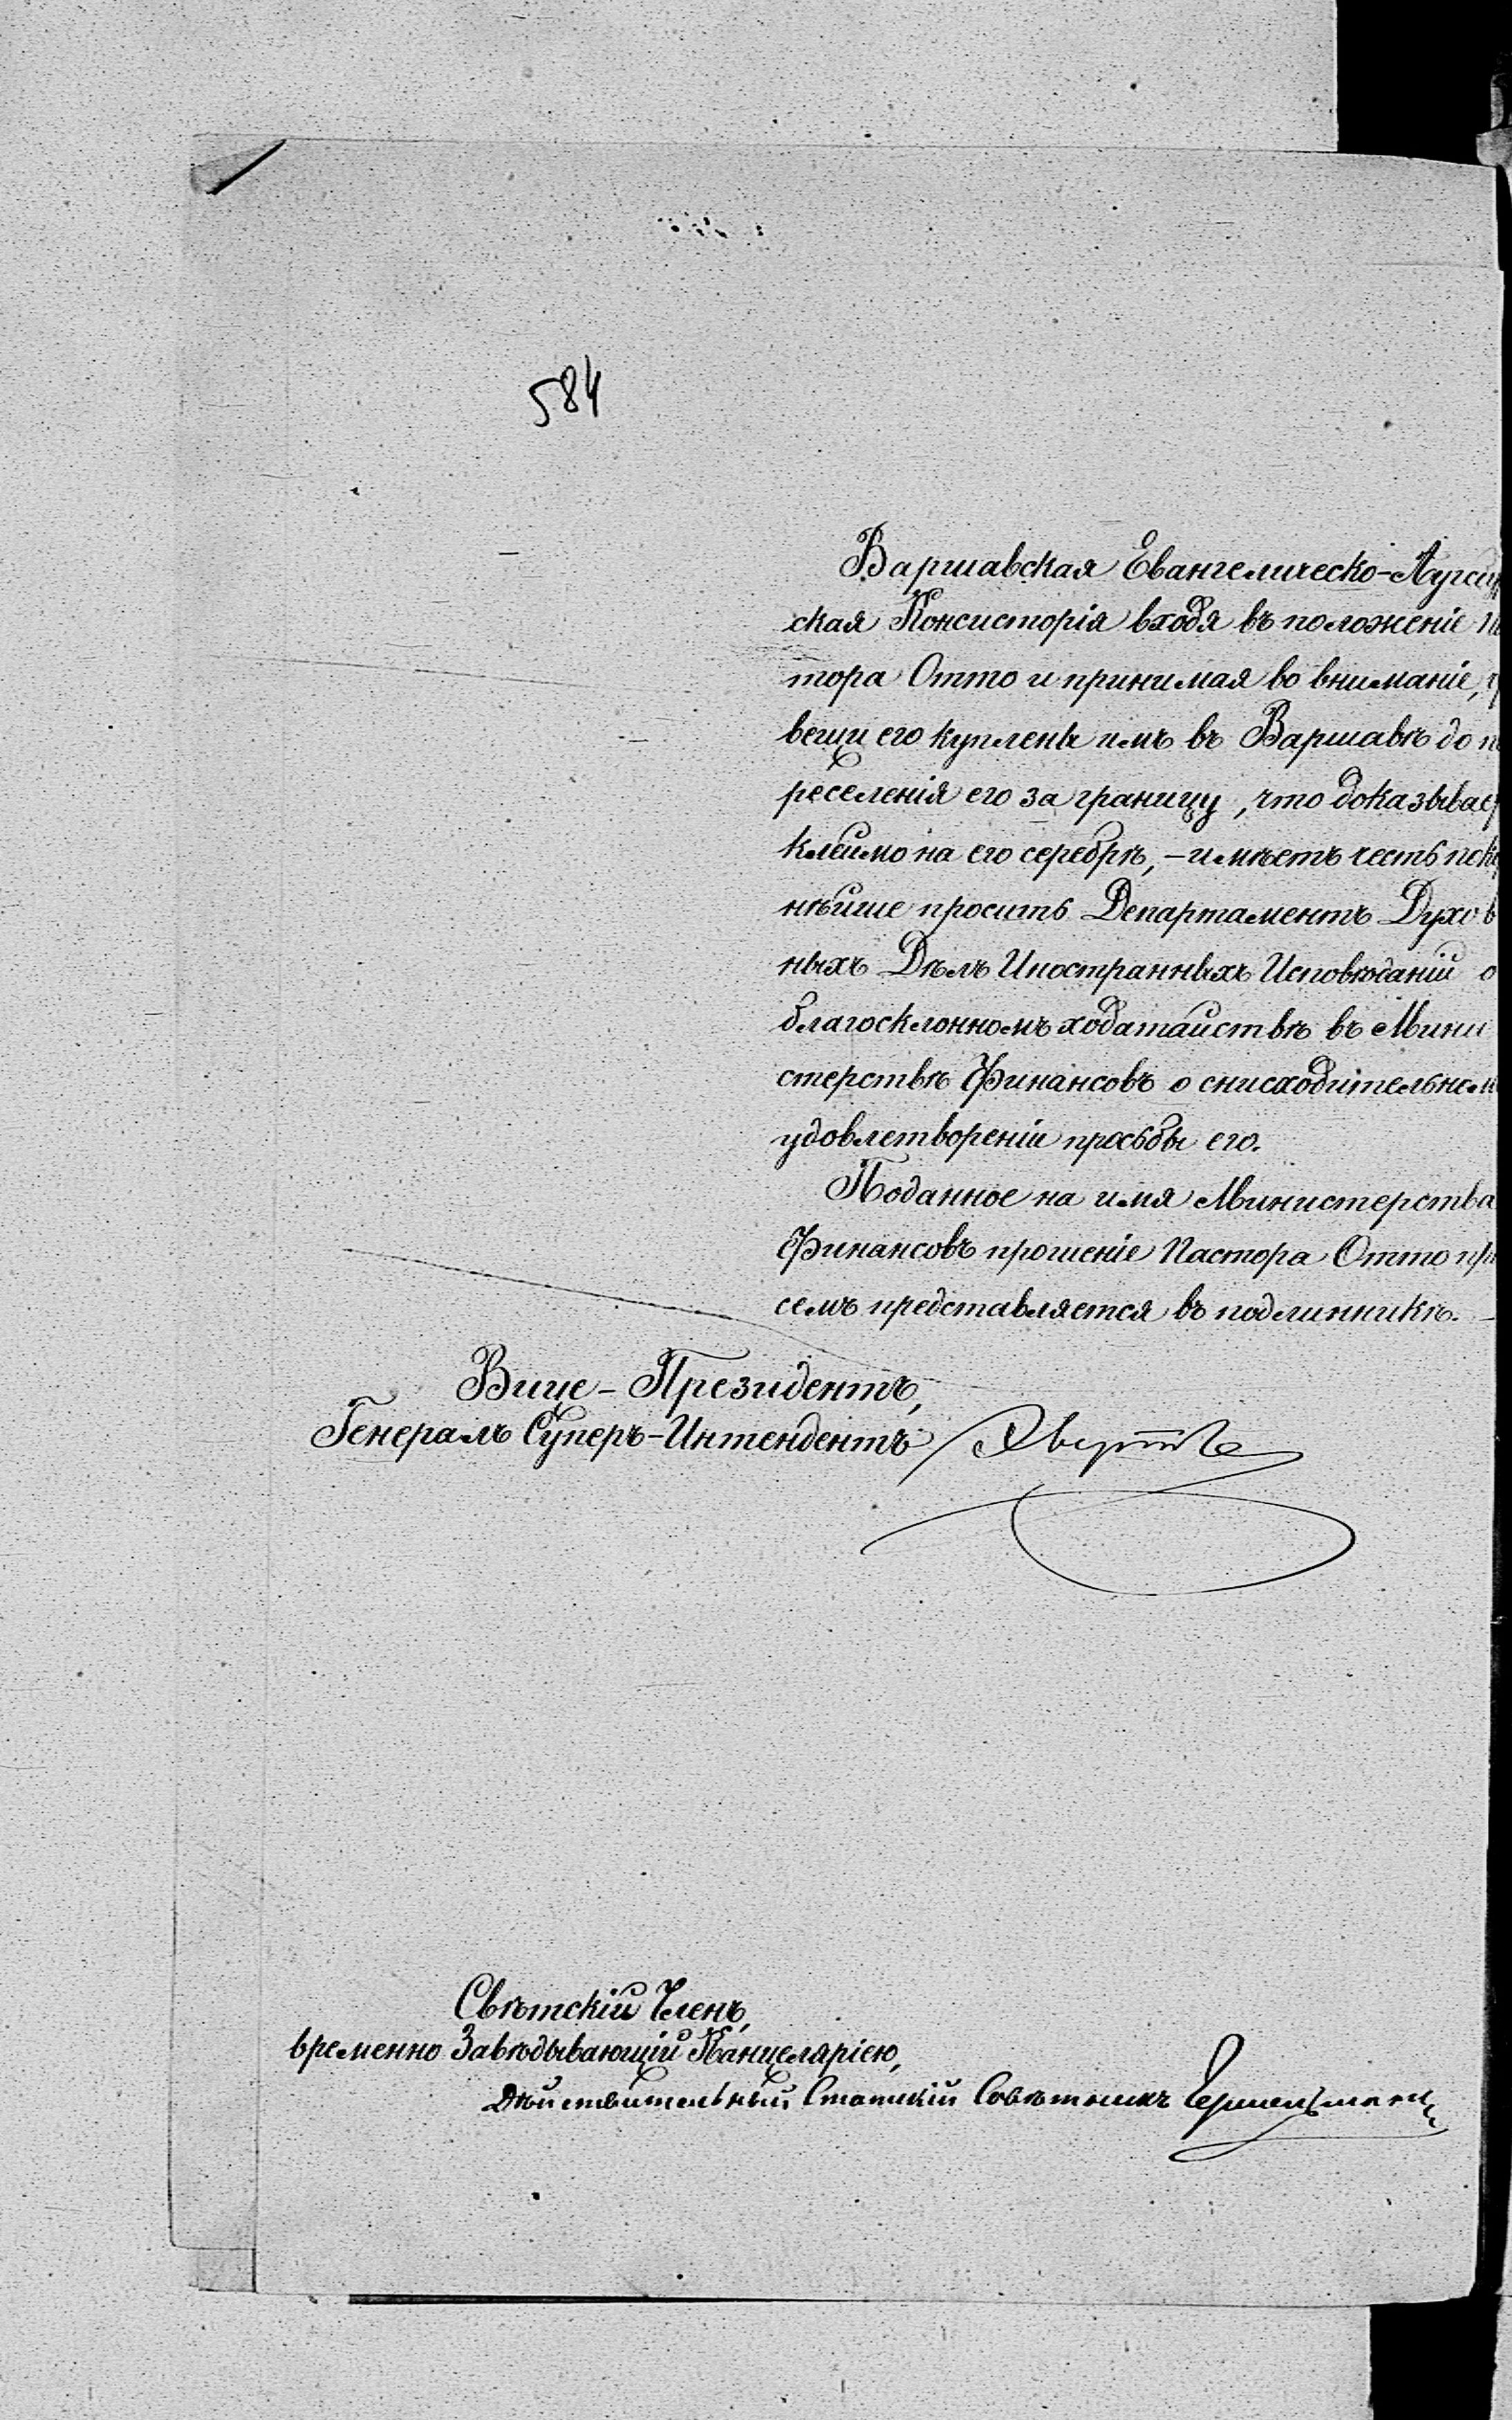 584
Варшавская Евангелическо-Аугсб
ская Консисторія входя въ положеніе
тора Отто и принимая во вниманіе,
вещи его куплены имъ въ Варшавѣ до п
реселенія его за границу, что доказывае
клеймо на его серебрѣ, – имѣетъ честь пок
нѣйше просить Департаментъ Духов
ныхъ Дѣлъ Иностранныхъ Исповѣданій о
благосклонномъ ходатайствѣ въ Мини
стерствѣ Финансовъ о снисходительном
удовлетвореніи просьбы его.
Поданное на имя Министерства
Финансовъ прошеніе Пастора Отто при
семъ представляется въ подлинникѣ. –
Вице-Президентъ,
Генералъ Суперъ-Интендентъ
Свѣтскій Членъ,
временно Завѣдывающій Канцеляріею,
Дѣйствительный Статскій Совѣтникъ